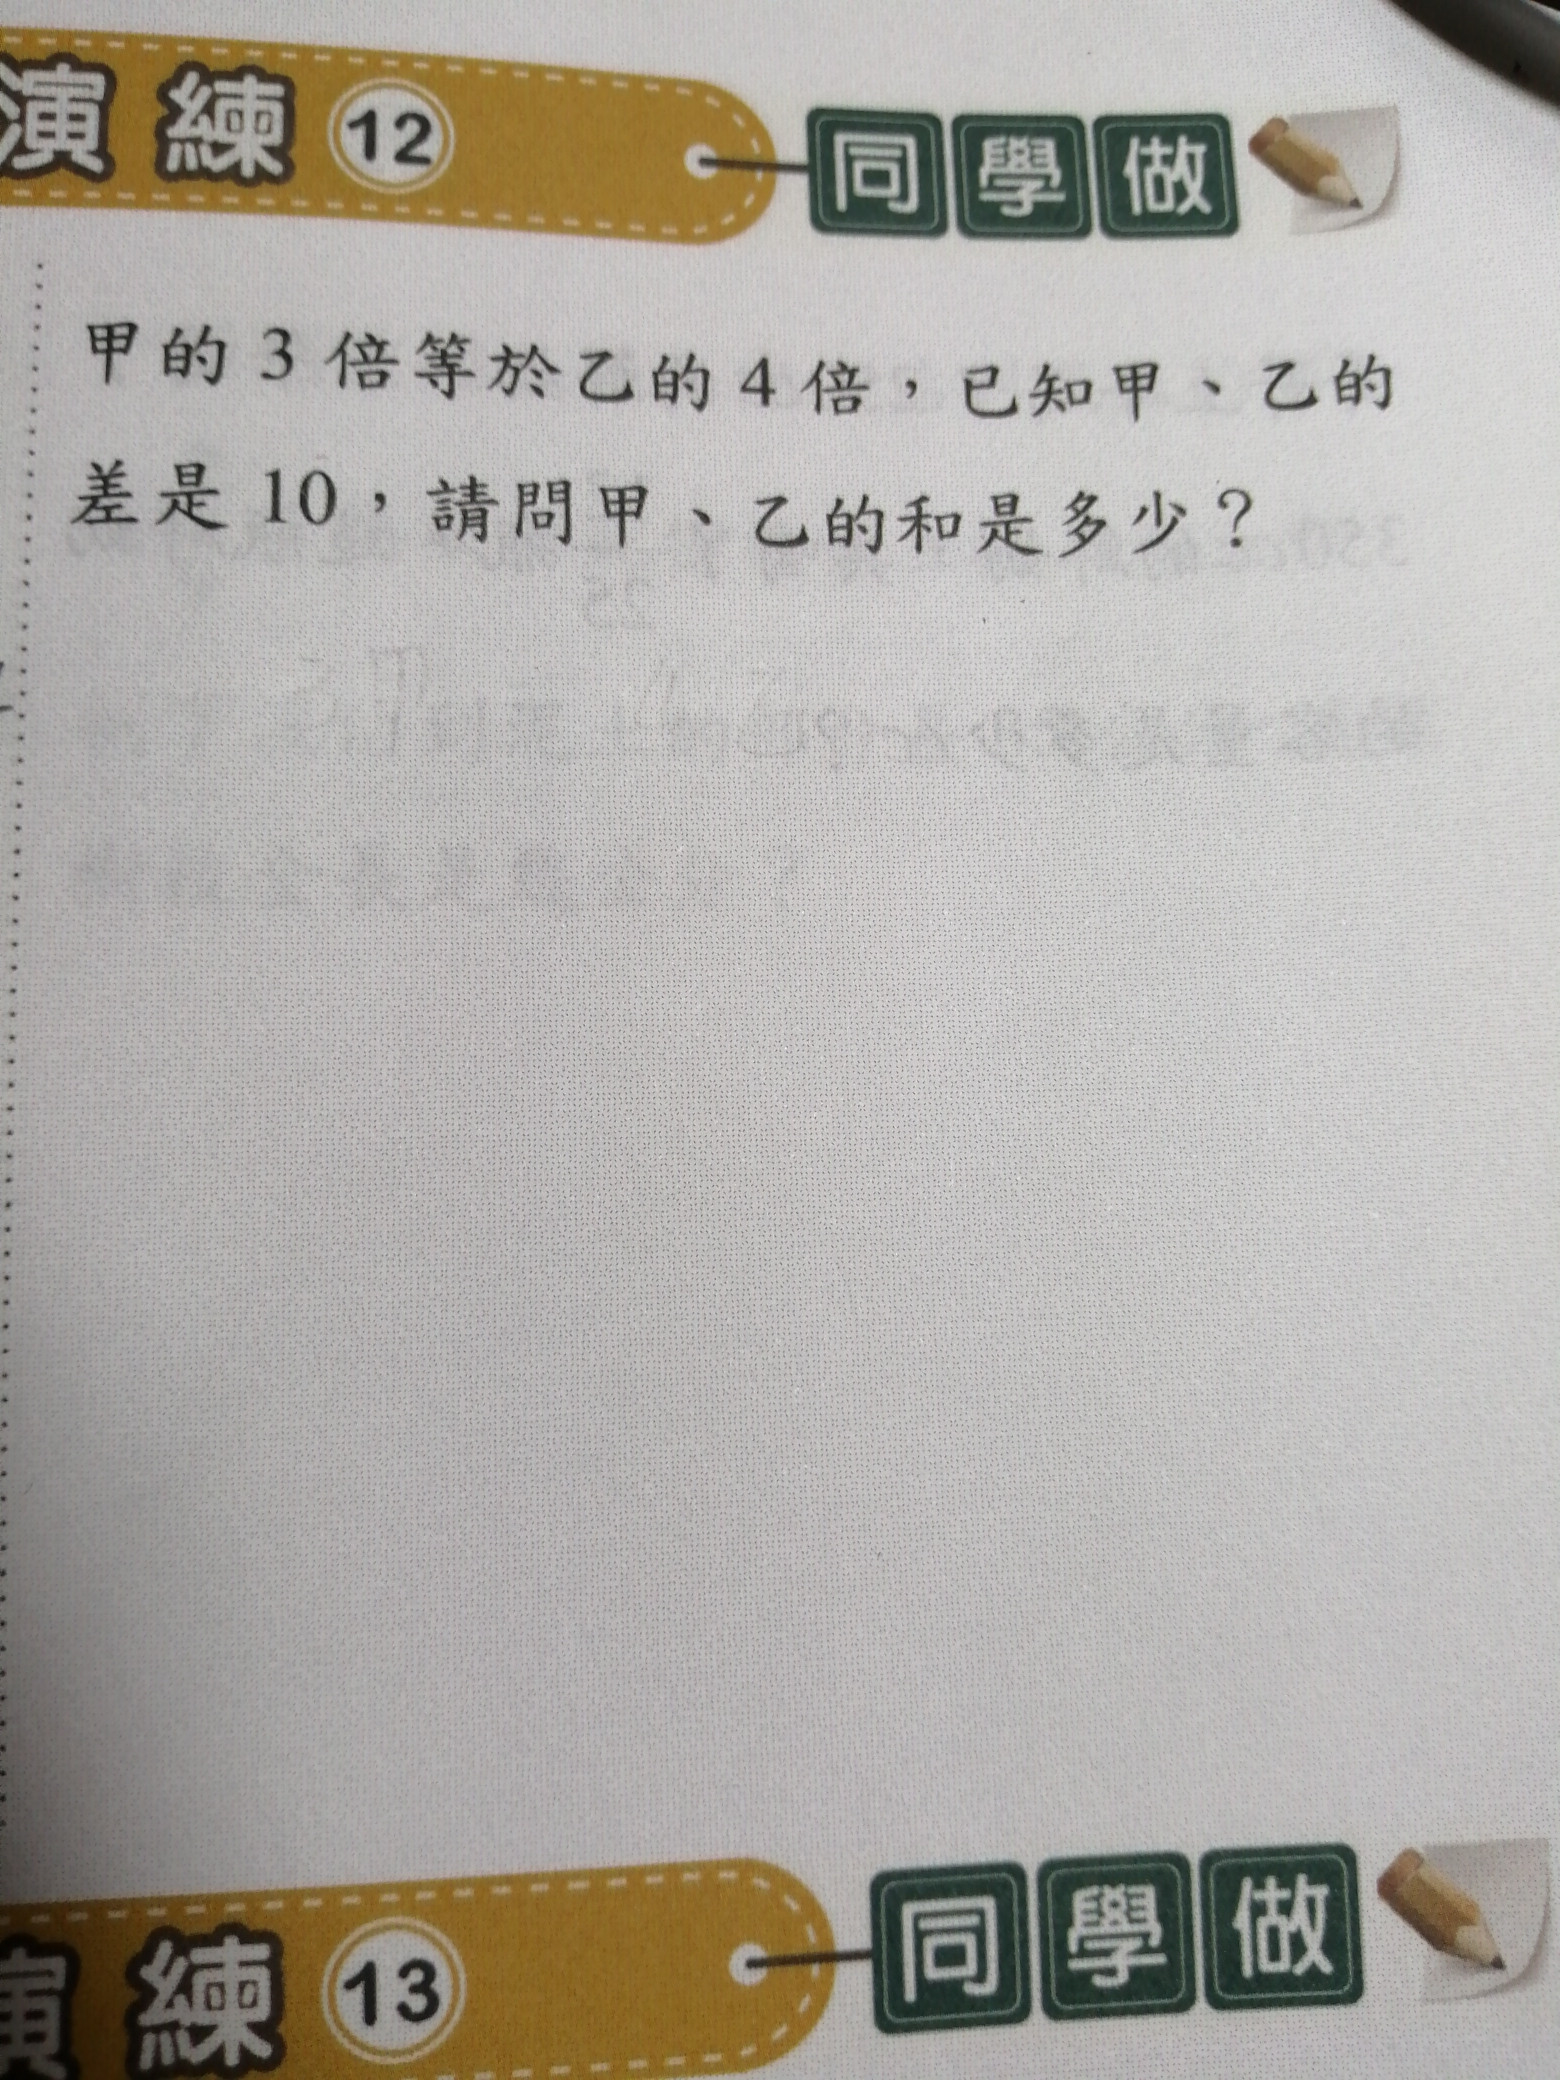 演練 12 同學做
甲的 3 倍等於乙的 4 倍，已知甲、乙的
差是 10，請問甲、乙的和是多少？
演練 13 同學做